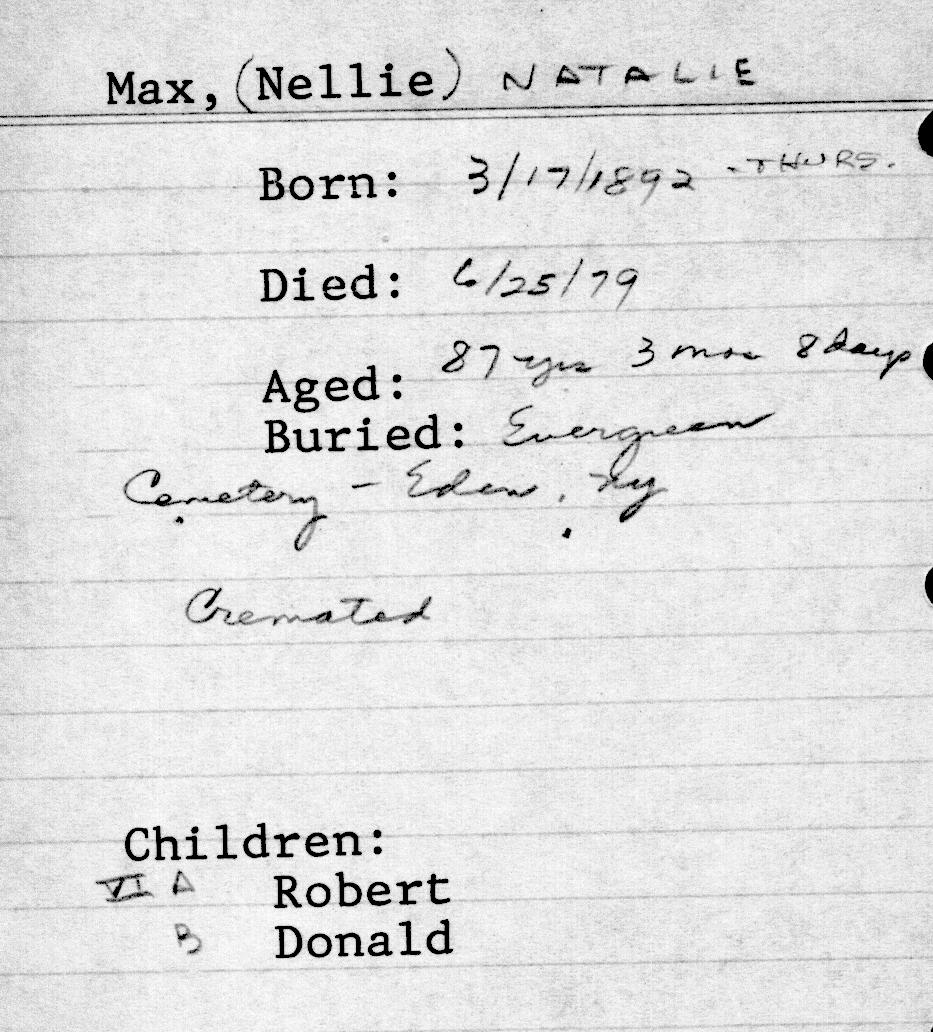 Max, (Nellie) NATALIE
Born: 3/17/1892 - THURS.
Died: 6/25/79
Aged: 87 yrs 3 mos 8 days
Buried: Evergreen
Cemetery - Eden, Ny
Cremated
Children:
VI A Robert
B Donald